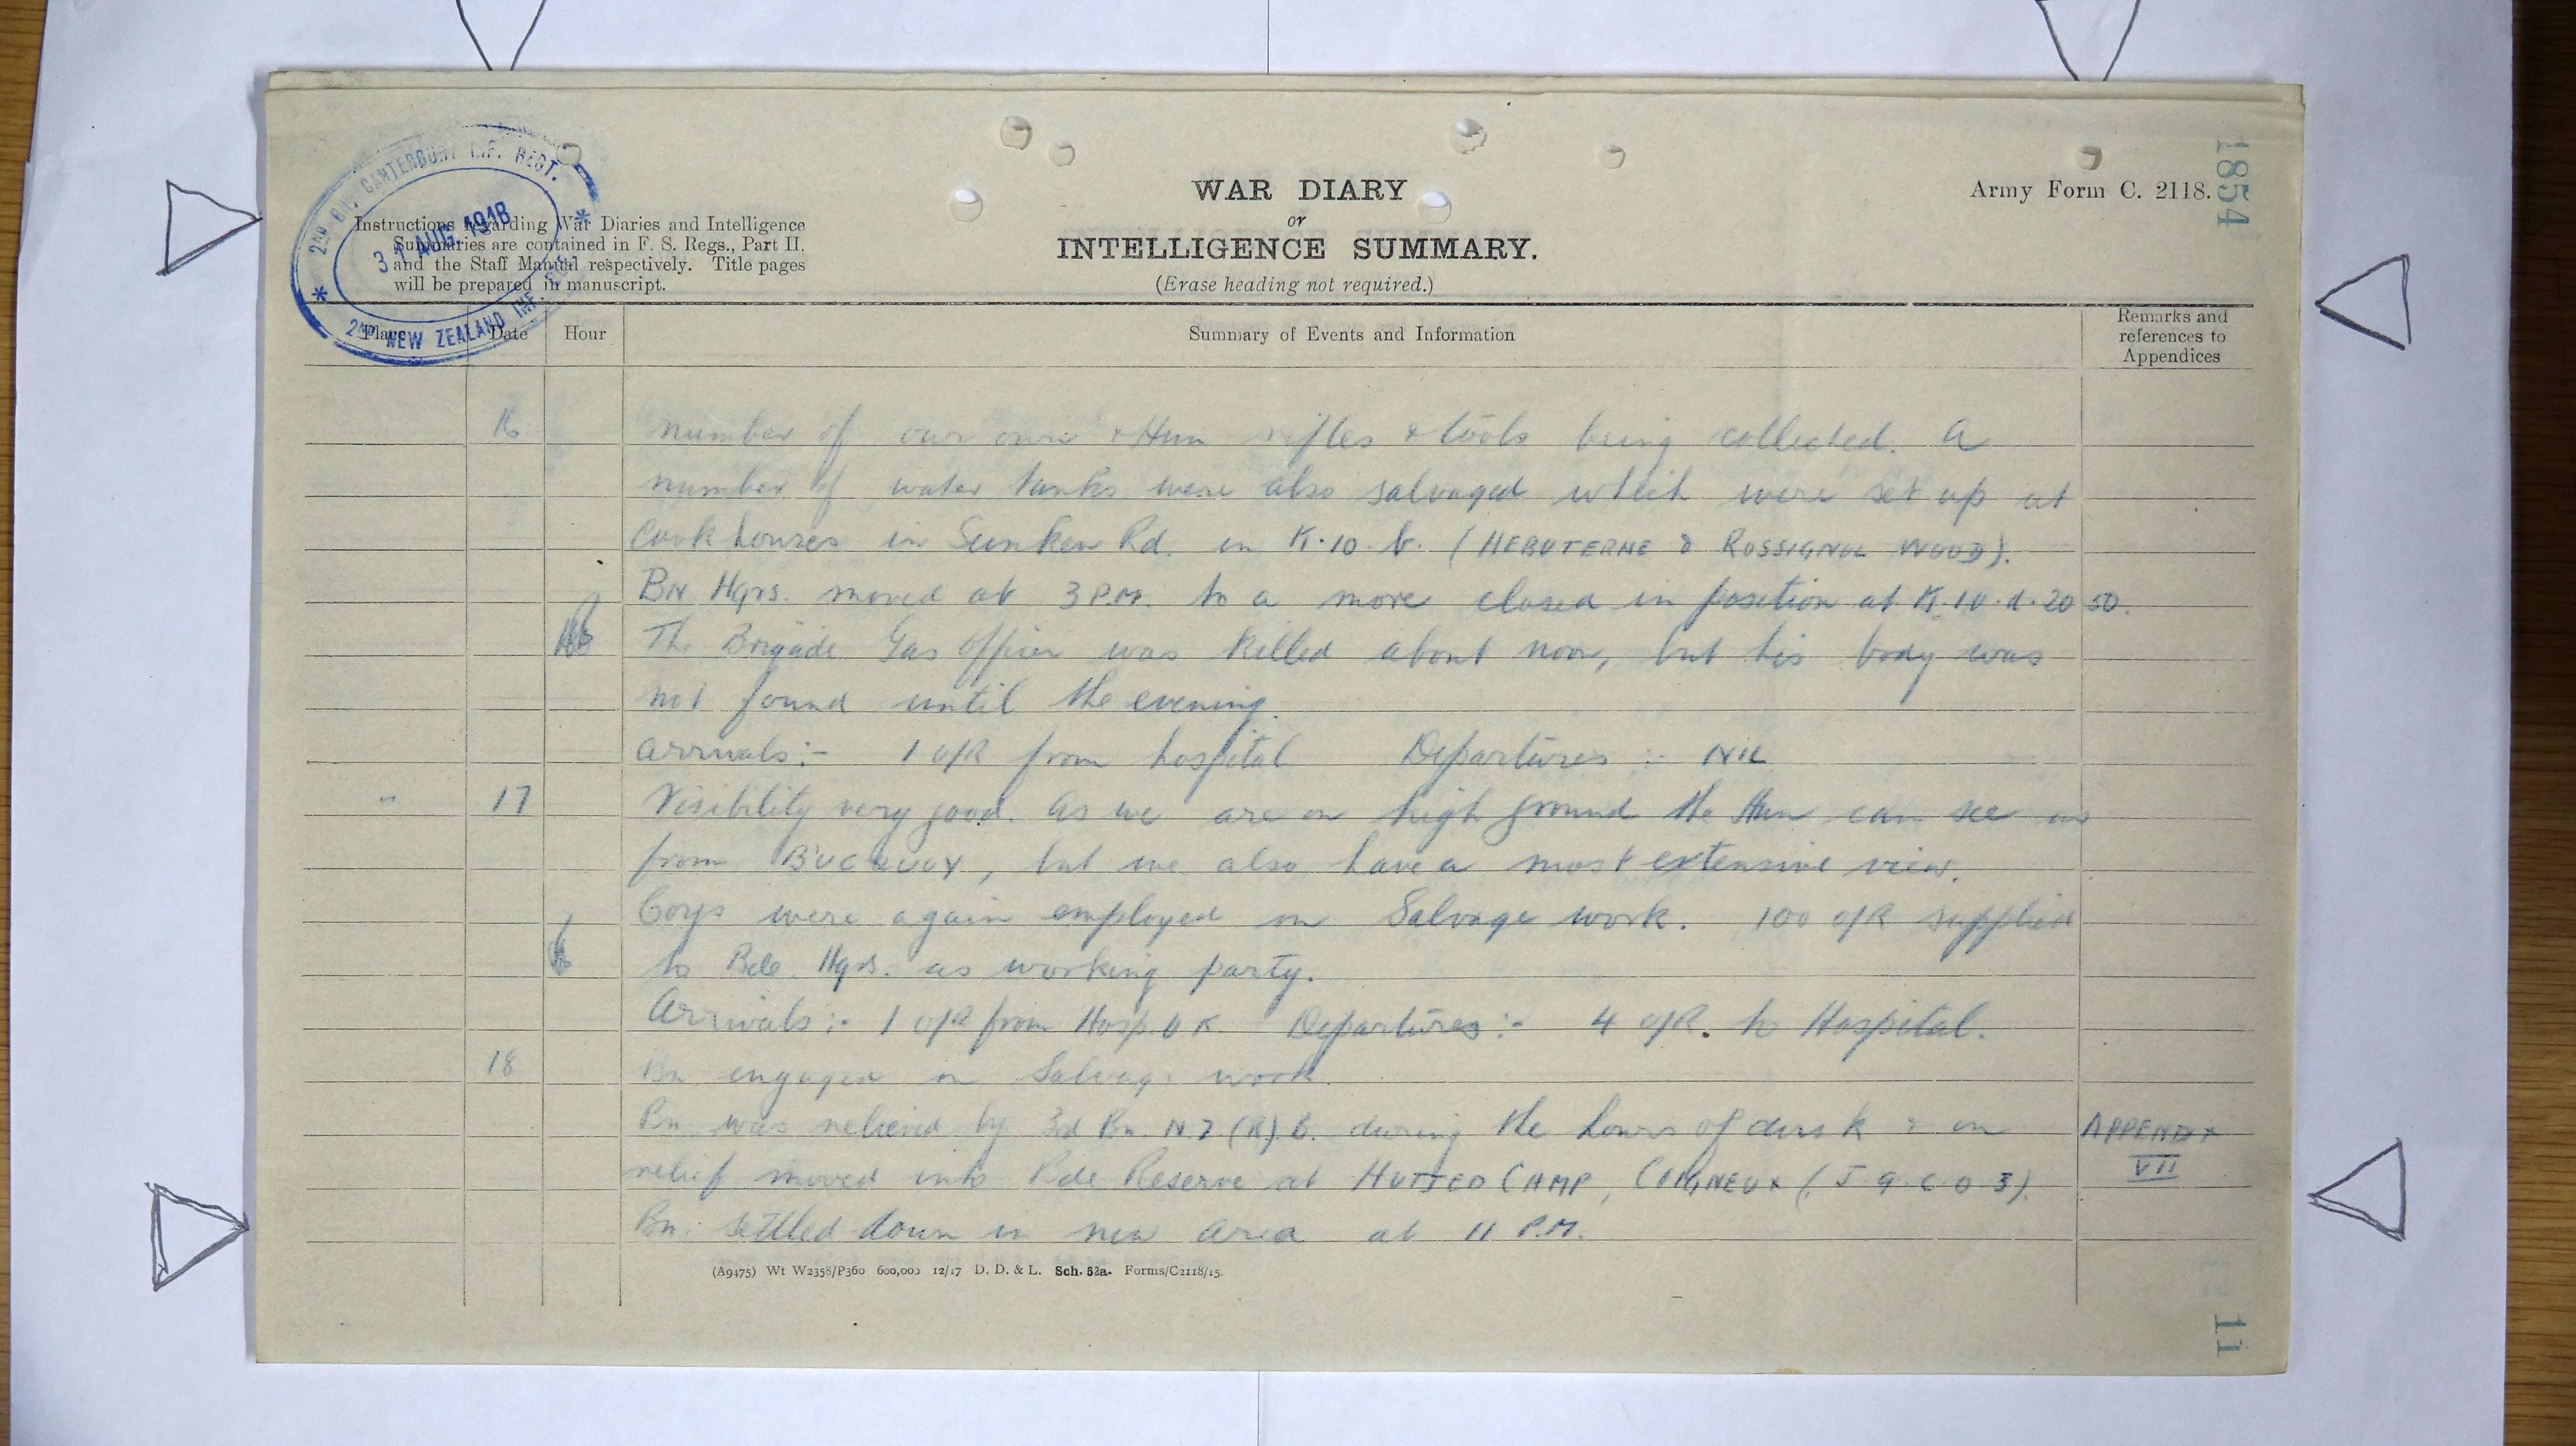 2ND BN. CANTERBURY INF. REGT.
31 AUG. 1918
2ND NEW ZEALAND INF. BDE.
1854
Army Form C. 2118.
WAR DIARY
or
INTELLIGENCE SUMMARY.
(Erase heading not required.)
Instructions regarding War Diaries and Intelligence
Summaries are contained in F. S. Regs., Part II.
and the Staff Manual respectively. Title pages
will be prepared in manuscript.
Place Date Hour Summary of Events and Information Remarks and references to Appendices
16 number of our own & Hun rifles & tools being collected. A
number of water tanks were also salvaged which were set up at
cookhouses in Sunken Rd. in K.10.b. (HEBUTERNE & ROSSIGNOL WOOD).
BN Hqrs. moved at 3 P.M. to a more closed in position at K.10.d.20 50.
The Brigade Gas Officer was killed about noon, but his body was
not found until the evening.
Arrivals:- 1 O/R from hospital Departures :- NIL
" 17 Visibility very good. As we are on high ground the Hun can see us
from BUCQUOY, but we also have a most extensive view.
Coys were again employed on Salvage work. 100 O/R supplied
to Bde. Hqrs. as working party.
Arrivals:- 1 O/R from Hosp. U K Departures:- 4 O/R. to Hospital.
18 Bn engaged on Salvage work.
Bn was relieved by 3rd Bn. N.Z (R) B. during the hours of dusk & on APPENDIX
relief moved into Bde Reserve at HUTTED CAMP, COIGNEUX (J 9 C 0 3). VII
Bn. settled down in new area at 11 P.M.
(A9475) Wt W2358/P360 600,000 12/17 D. D. & L. Sch. 52a. Forms/C2118/15.
11